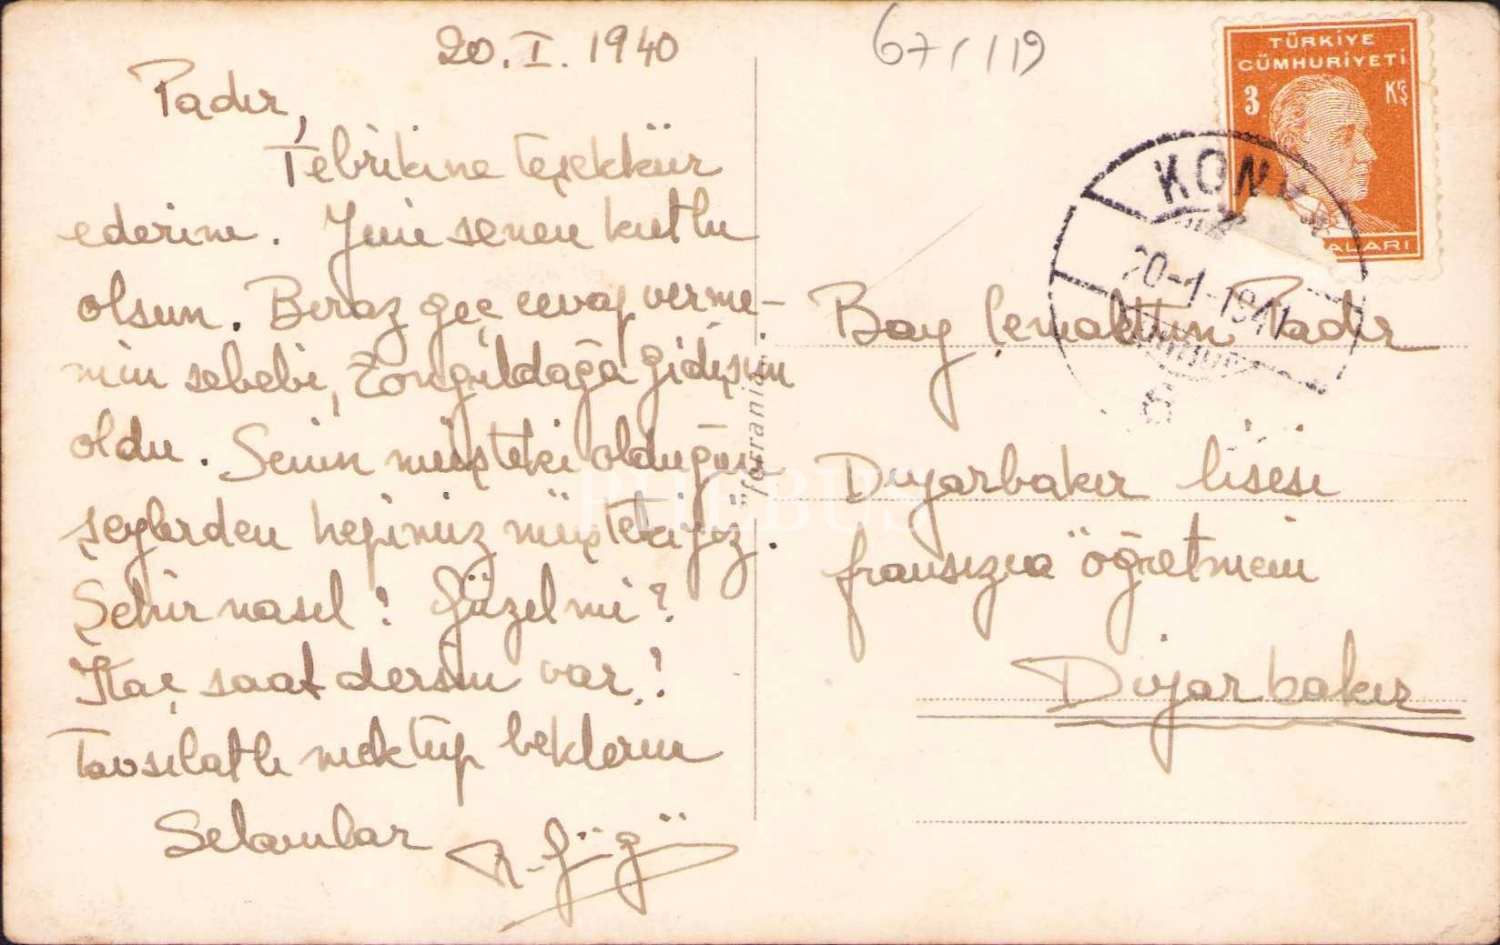 20.I.1940
67/119
Padır,
Tebrikine teşekkür
ederim. Yeni senen kutlu
olsun. Beraz geç cevap verme-
min sebebi, Zonguldağa gidişim
oldu. Senin müşteki olduğun
şeylerden hepimiz müştekiyiz.
Şehir nasıl? Güzel mi?
Kaç saat dersin var?
Tavsılatlı mektup beklerim
Selamlar
TÜRKİYE
CÜMHURİYETİ
3 Krş
ALARI
KONYA
20-1-1941
6
"ferrania"
Bay Cemalettin Padır
Diyarbakır lisesi
fransızca öğretmeni
Diyarbakır
PHEBUS